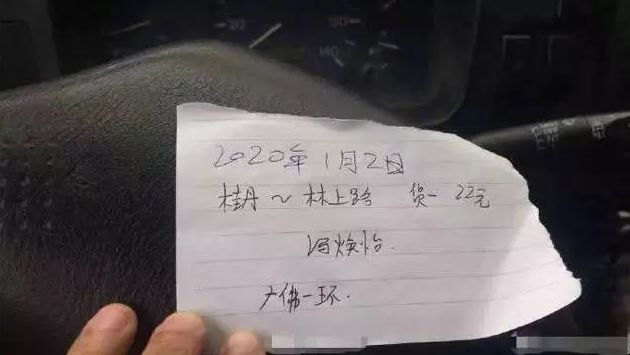 2020年1月2日
桂丹~林上路 货一 22元
冯焕怡.
广佛一环.